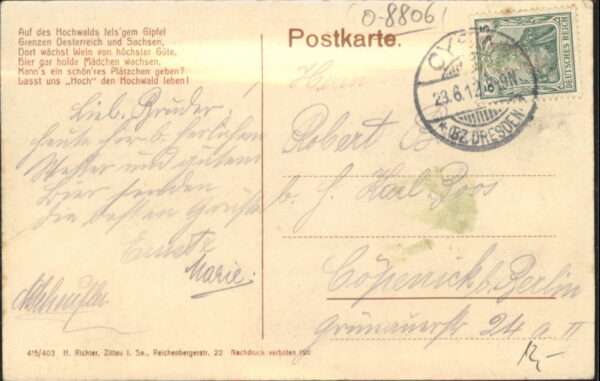 O-8806
Auf des Hochwalds fels'gem Gipfel
Grenzen Oesterreich und Sachsen,
Dort wächst Wein von höchster Güte,
Bier gar holde Mädchen wachsen.
Kann's ein schön'res Plätzchen geben?
Lasst uns „Hoch“ den Hochwald leben!
Postkarte.
DEUTSCHES REICH
23.6.12. 8-9N.
* (BZ. DRESDEN) *
Lieb. Bruder!
heute hier b. herlichen
Wetter und gutem
Bier senden
die besten Grüße
Marie.
Herrn
Robert
b. H. Karl Boos
Cöpenick b. Berlin
Grünauerstr 24 a II
12,-
415/403 H. Richter, Zittau i. Sa., Reichenbergerstr. 22 Nachdruck verboten